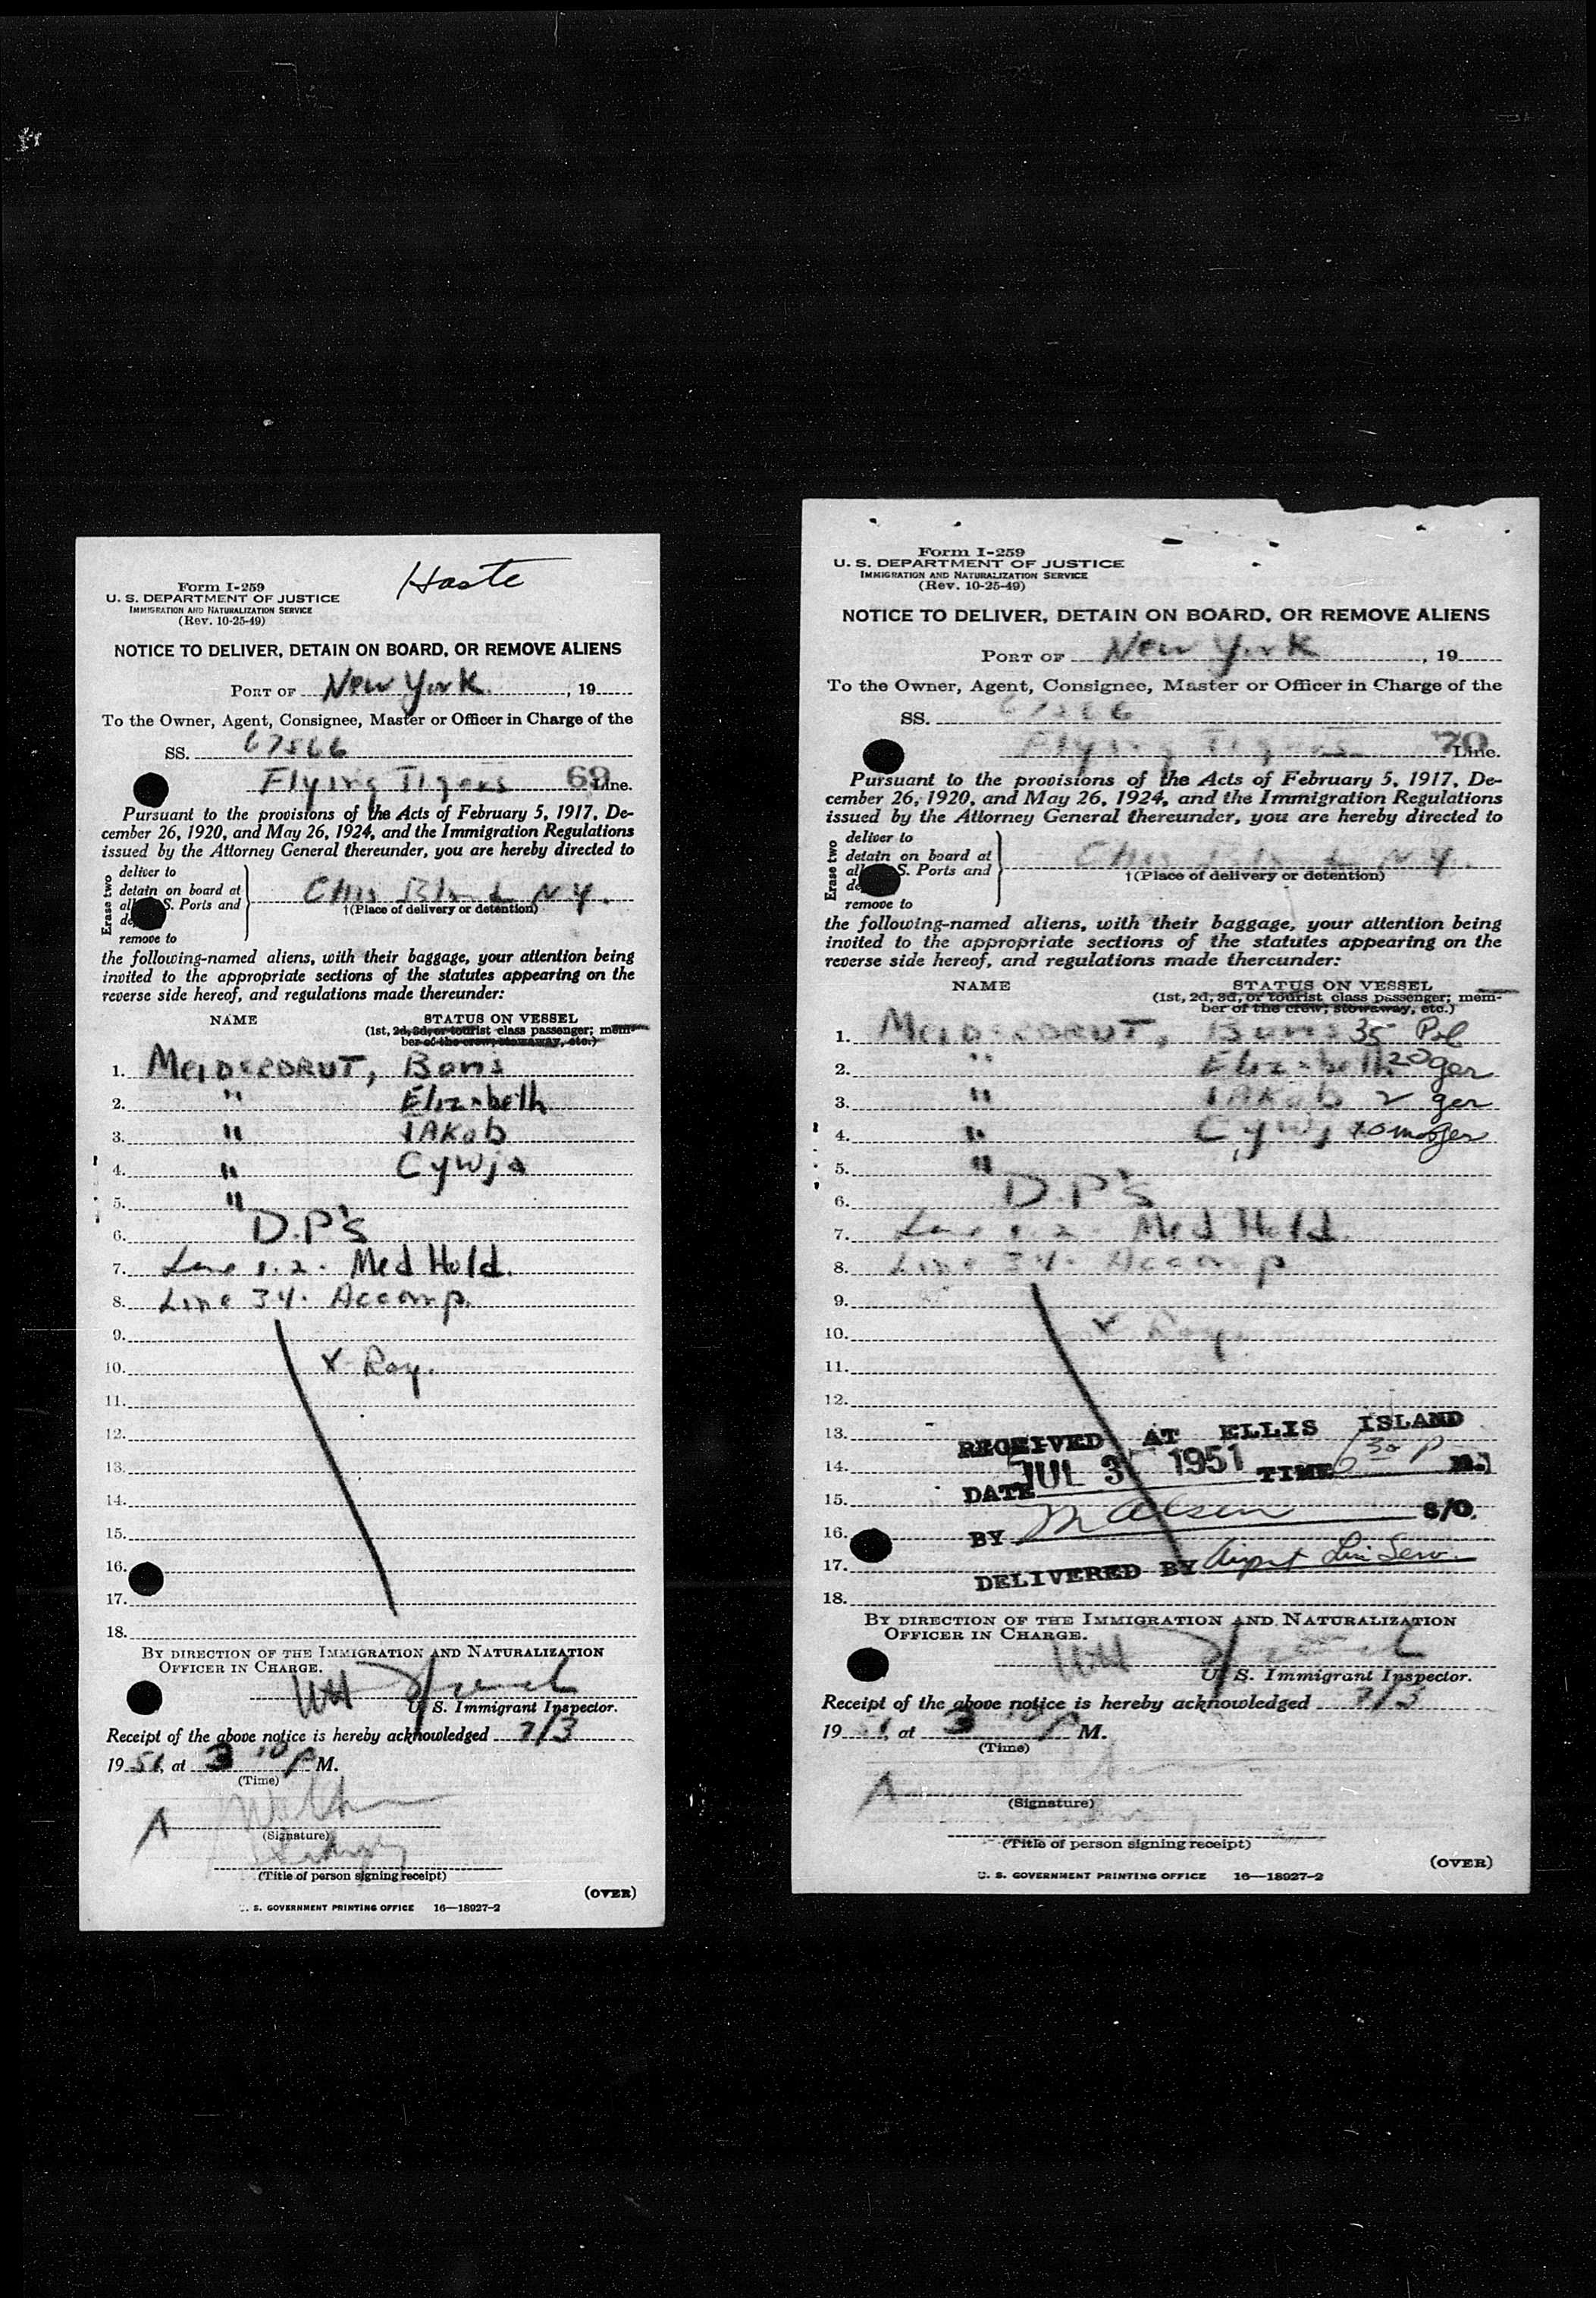 Haste
Form I-259
U. S. DEPARTMENT OF JUSTICE
IMMIGRATION AND NATURALIZATION SERVICE
(Rev. 10-25-49)
NOTICE TO DELIVER, DETAIN ON BOARD, OR REMOVE ALIENS
PORT OF New York, 19
To the Owner, Agent, Consignee, Master or Officer in Charge of the
SS. 67566
Flying Tigers 69 Line.
Pursuant to the provisions of the Acts of February 5, 1917, De-
cember 26, 1920, and May 26, 1924, and the Immigration Regulations
issued by the Attorney General thereunder, you are hereby directed to
Erase two
deliver to
detain on board at
all S. Ports and
de
remove to
N.Y.
†(Place of delivery or detention)
the following-named aliens, with their baggage, your attention being
invited to the appropriate sections of the statutes appearing on the
reverse side hereof, and regulations made thereunder:
NAME STATUS ON VESSEL
(1st, 2d, 3d, or tourist class passenger; mem-
ber of the crew; stowaway, etc.)
1. Boris
2. " Elizabeth
3. " IAKob
4. " Cywja
5. "
6. D.P's
7. Line 1.2. Med Hold.
8. Line 34. Accomp.
9.
10. X-Ray.
11.
12.
13.
14.
15.
16.
17.
18.
BY DIRECTION OF THE IMMIGRATION AND NATURALIZATION
OFFICER IN CHARGE.
U. S. Immigrant Inspector.
Receipt of the above notice is hereby acknowledged 7/3
1951, at 3 10 P M.
(Time)
(Signature)
(Title of person signing receipt)
(OVER)
U. S. GOVERNMENT PRINTING OFFICE 16—18927-2
Form I-259
U. S. DEPARTMENT OF JUSTICE
IMMIGRATION AND NATURALIZATION SERVICE
(Rev. 10-25-49)
NOTICE TO DELIVER, DETAIN ON BOARD, OR REMOVE ALIENS
PORT OF New York, 19
To the Owner, Agent, Consignee, Master or Officer in Charge of the
SS. 67566
Flying Tigers 70 Line.
Pursuant to the provisions of the Acts of February 5, 1917, De-
cember 26, 1920, and May 26, 1924, and the Immigration Regulations
issued by the Attorney General thereunder, you are hereby directed to
Erase two
deliver to
detain on board at
all S. Ports and
de
remove to
N.Y.
†(Place of delivery or detention)
the following-named aliens, with their baggage, your attention being
invited to the appropriate sections of the statutes appearing on the
reverse side hereof, and regulations made thereunder:
NAME STATUS ON VESSEL
(1st, 2d, 3d, or tourist class passenger; mem-
ber of the crew; stowaway, etc.)
1. Boris 35 Pol
2. " Elizabeth 20 ger
3. " IAKob 2 ger
4. " Cywj 10 mos ger
5. "
6. D.P's
7. Line 1.2. Med Hold.
8. Line 34. Accomp
9.
10. X-Ray.
11.
12.
13.
14.
15.
16.
17.
18.
RECEIVED AT ELLIS ISLAND
DATE JUL 3 1951 TIME 6 30 P M.
BY M Olsen S/O.
DELIVERED BY Airport Lim Serv.
BY DIRECTION OF THE IMMIGRATION AND NATURALIZATION
OFFICER IN CHARGE.
U. S. Immigrant Inspector.
Receipt of the above notice is hereby acknowledged 7/3
1951, at 3 10 P M.
(Time)
(Signature)
(Title of person signing receipt)
(OVER)
U. S. GOVERNMENT PRINTING OFFICE 16—18927-2